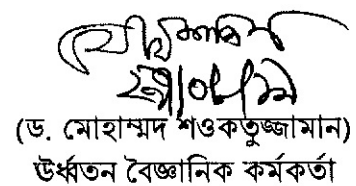 (ড. মোহাম্মদ শওকতুজ্জামান)
ঊর্ধ্বতন বৈজ্ঞানিক কর্মকর্তা